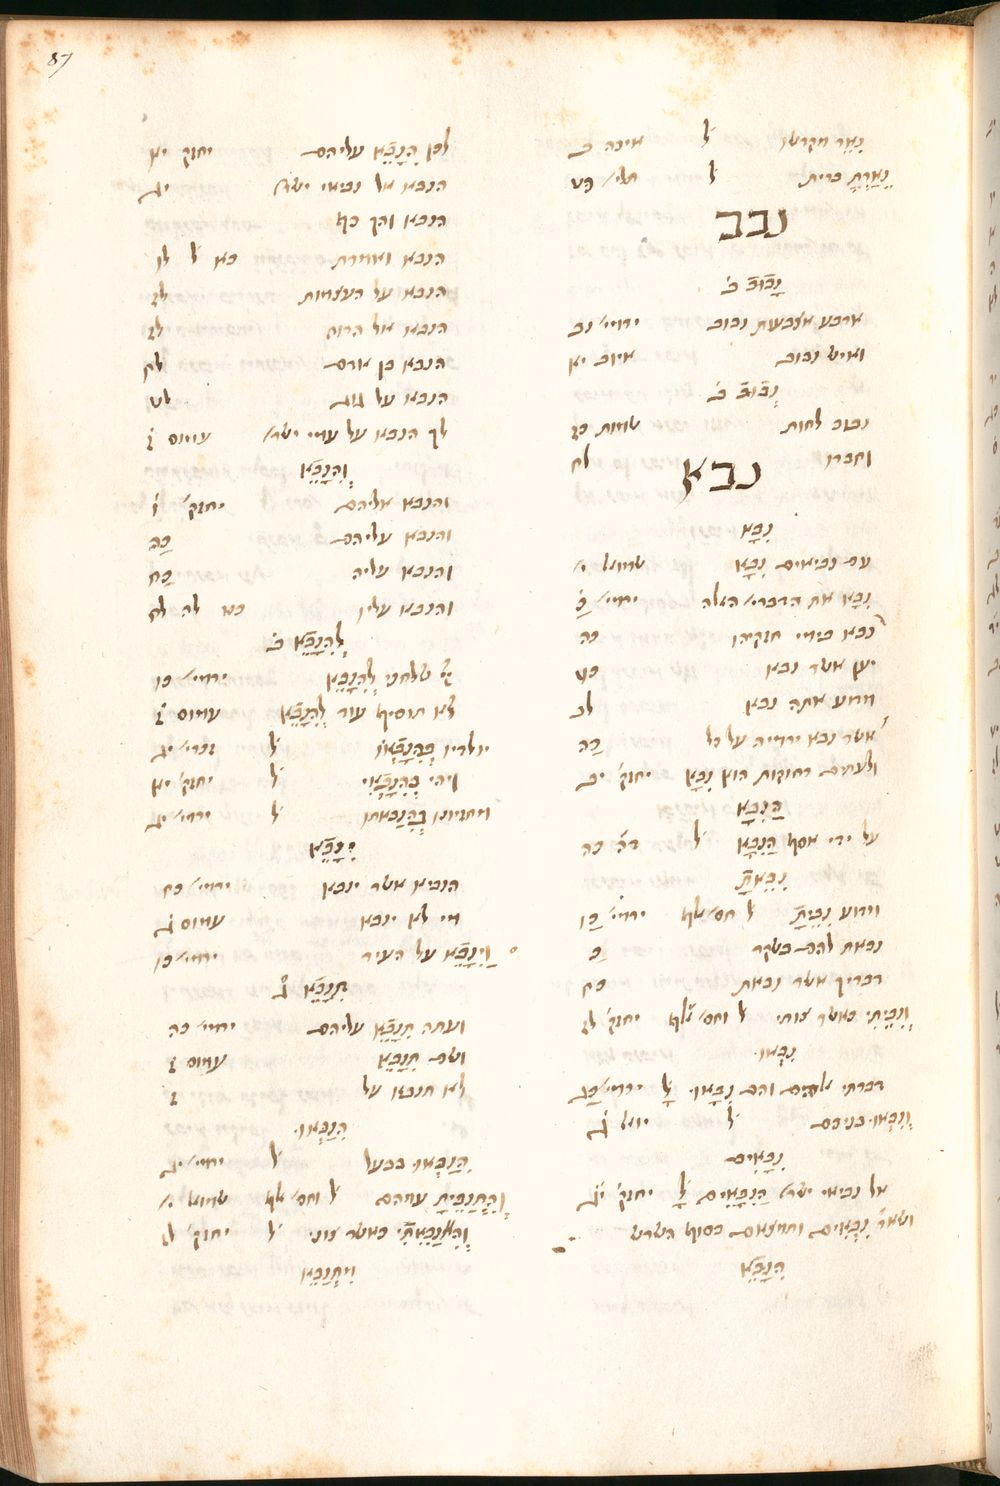 87
נִאֵר מקדשו ל איכה ב
נֵאַרְתָּ ברית ל תלי׳ פט
נבב
נָבוּב ב׳
ארבע אצבעות נבוב ירמי׳ נב
ואיש נבוב איוב יא
נְבוּב ב׳
נבוב לחות שמות כז
וחברו לח
נבא
נִבָּא
עם נביאים נִבָּא שמואל י׳
נִבָּא את הדברי׳ האלה ירמי׳ כ
נבא בימי חזקיהו כו
יען אשר נבא כט
מדוע אתה נבא לב
אשר נבא ירמיה על כל כה
ולעתים רחוקות הוא נִבָּא יחזק׳ יב
הַנִּבָּא
על ידי אסף הַנִּבָּא ל ד״ה כה
נִבֵּאתָ
מדוע נִבֵּיתָ ל חס׳ אלף ירמי׳ כו
נבאת להם בשקר כ
דבריך אשר נבאת כח
וְנִבֵּיתִי כאשר צותי ל וחס׳ אלף יחזק׳ לז
נִבְּאוּ
דברתי אליהם והם נִבָּאוּ ל ירמי׳ כג
וְנִבְּאוּ בניכם ל יואל ג
נִבָּאִים
אל נביאי ישר׳ הַנִּבָּאִים ל יחזק׳ יג
ושאר נִבְּאִים ותמצאם בסוף השרש
הִנָּבֵא
לכן הִנָּבֵא עליהם יחזק יא
הנבא אל נביאי ישר׳ יג
הנבא והך כף
הנבא ואמרת כא ל לו
הנבא על העצמות לז
הנבא אל הרוח לז
הנבא בן אדם לח
הנבא על גוג לט
לך הנבא על עמי ישר׳ עמוס ז
וְהִנָּבֵא
והנבא אליהם יחזק׳ ו
והנבא עליהם כה
והנבא עליה כח
והנבא עליו כט לה לח
לְהִנָּבֵא ב׳
יי שלחני לְהִנָּבֵא ירמי׳ כו
לא תוסיף עוד לְהִנָּבֵא עמוס ז
יולדיו בְּהִנָּבְאוֹ ל זכרי׳ יג
ויהי כְּהִנָּבְאִי ל יחזק׳ יא
מחזיונו בְּהִנָּבאתו ל זכרי׳ יג
יִנָּבֵא
הנביא אשר ינבא ירמי׳ כח
מי לא ינבא עמוס ג
וַיִּנָּבֵא על העיר ירמי׳ כו
תִנָּבֵא ג
ועתה תִנָּבֵא עליהם ירמי׳ כה
ושם תִנָּבֵא עמוס ז
לא תנבא על ז
הִנַּבְּאוּ
הִנַּבְּאוּ בבעל ל ירמי׳ יג
וְהִתְנַבֵּיתָ עמהם ל וחס׳ אלף שמואל י׳
וְהִנַּבֵּאתִי כאשר צוני ל יחזק׳ לז
וַיִּתְנַבֵּא